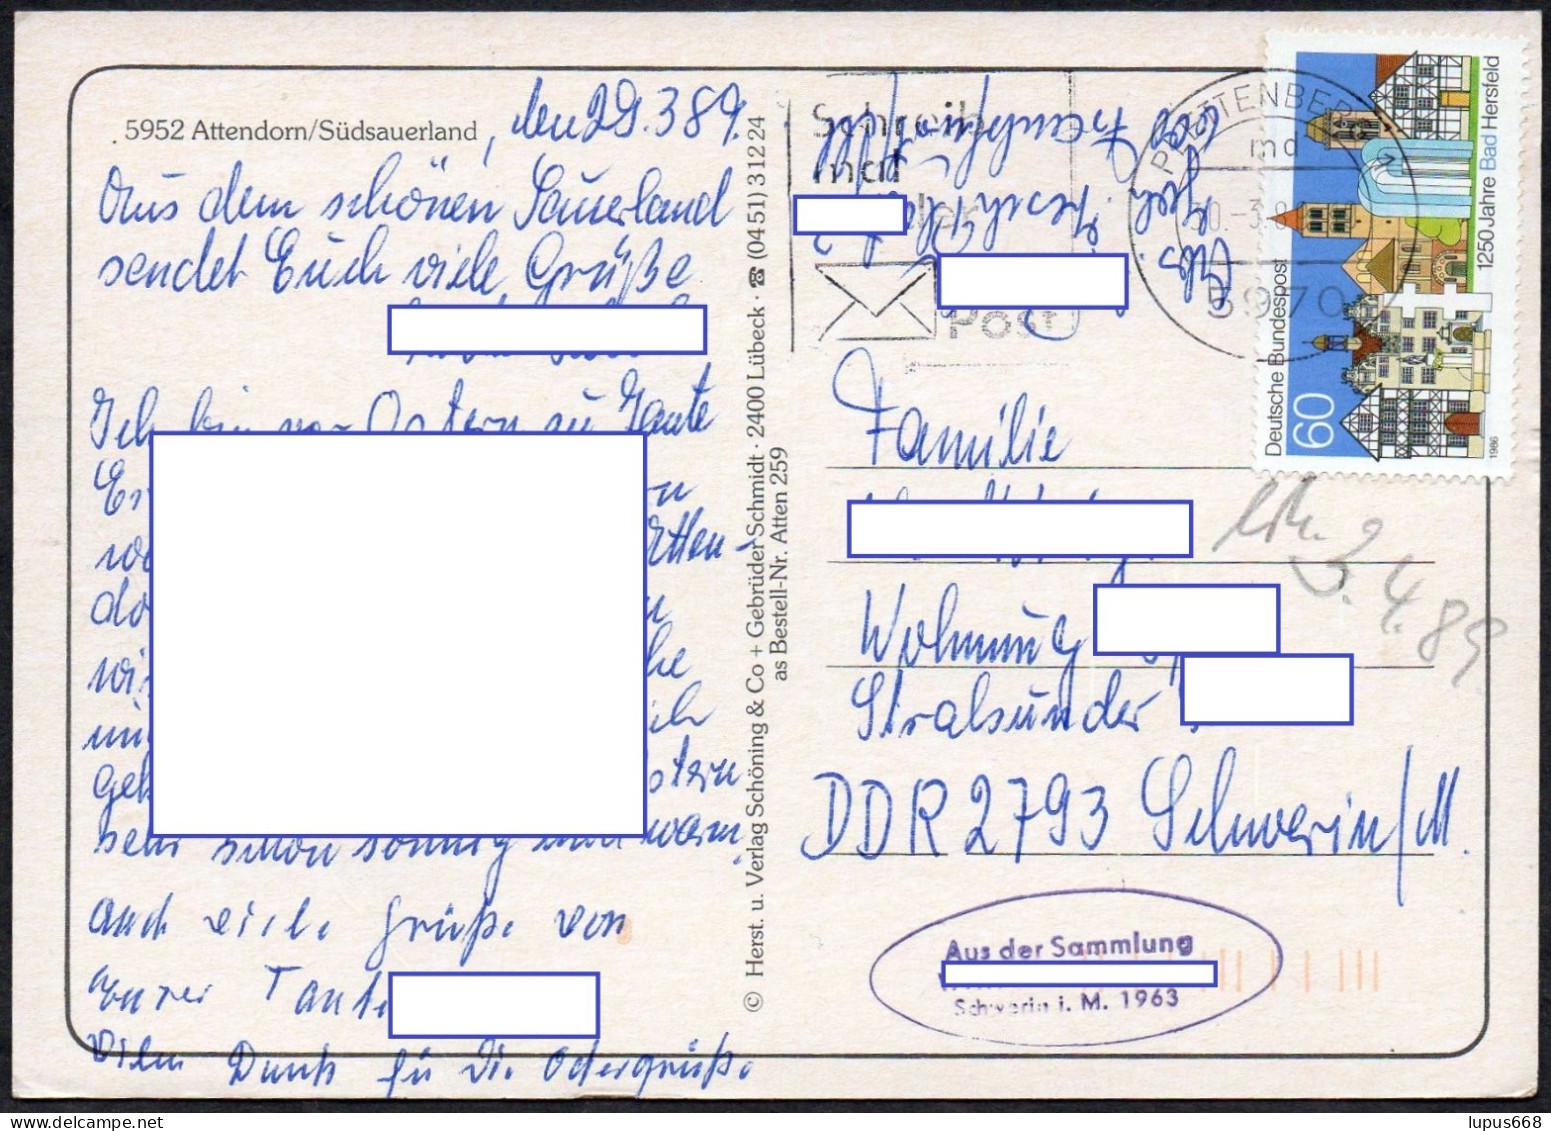 5952 Attendorn/Südsauerland
, den 29.3.89.
Aus dem schönen Sauerland
sendet Euch viele Grüße
Ich bin vor Ostern zu Tante
Er
n
Atten-
do
wi
he
mi
ich
ge
Ostern
sehr schön sonnig und warm.
Auch viele Grüße von
Eurer Tante
Vielen Dank für die Ostergrüße.
© Herst. u. Verlag Schöning & Co + Gebrüder Schmidt · 2400 Lübeck · ☎ (0451) 3 12 24
as Bestell-Nr. Atten 259
Schreib
mal
Post
PLETTENBERG
md
5970
Deutsche Bundespost
60
1250 Jahre Bad Hersfeld
1986
Familie
Wohnung
Stralsunder
DDR 2793 Schwerin/M.
3.4.89
Aus der Sammlung
Schwerin i. M. 1963
lupus668